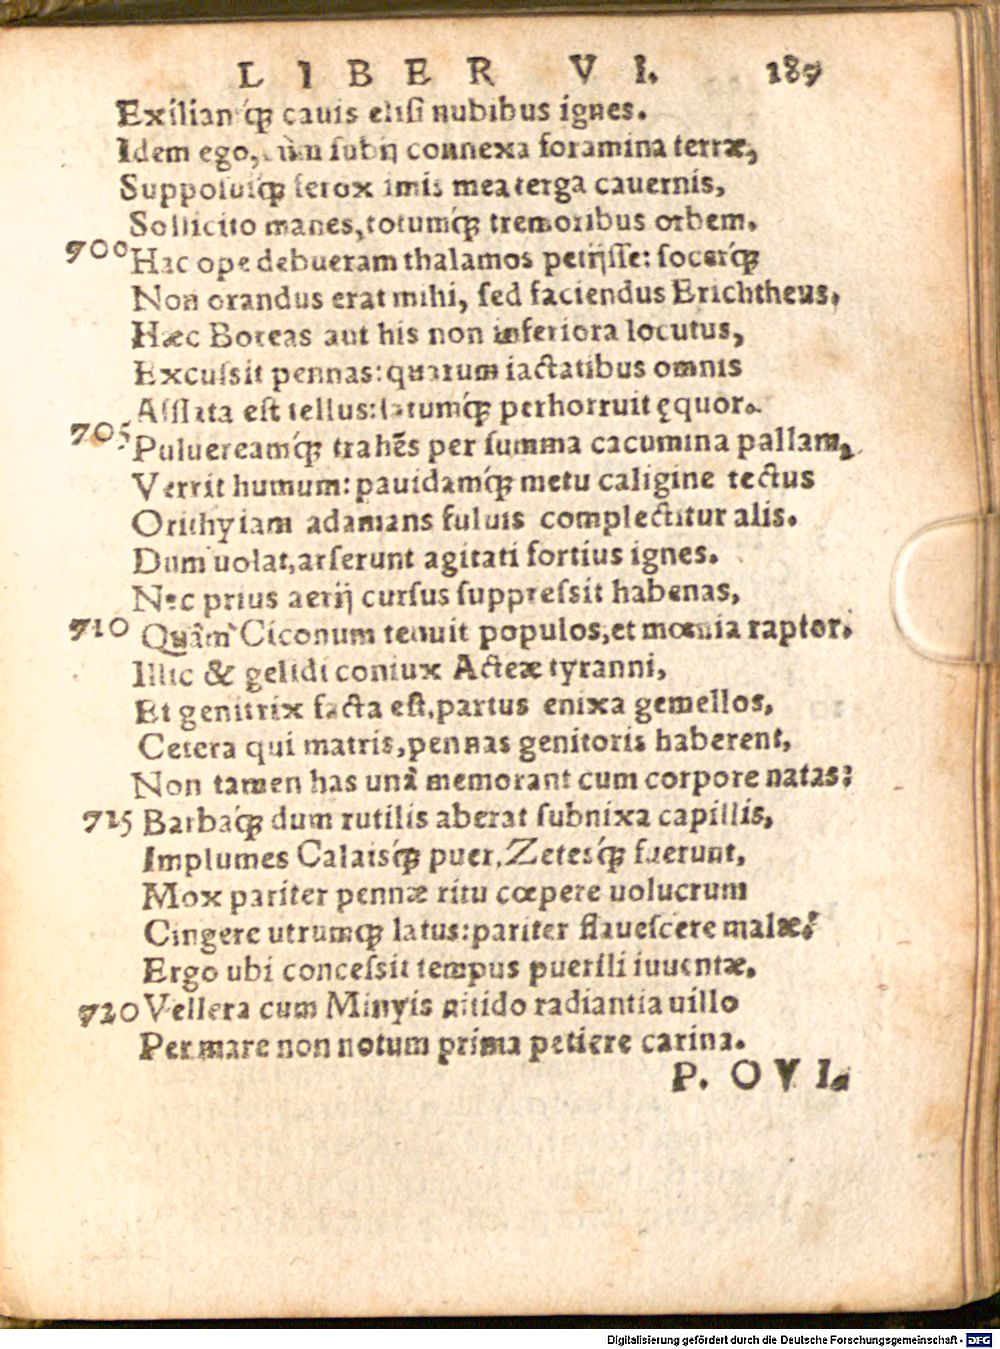 LIBER VI. 189
Exiliantq́; cauis elisi nubibus ignes.
Idem ego, cùm subij connexa foramina terræ,
Supposuiq́; ferox imis mea terga cauernis,
Sollicito manes, totumq́; tremoribus orbem.
700 Hac ope debueram thalamos petijsse: socerq́;
Non orandus erat mihi, sed faciendus Erichtheus,
Hæc Boreas aut his non inferiora locutus,
Excussit pennas: quarum iactatibus omnis
Afflata est tellus: latumq́; perhorruit ęquor.
705 Puluereamq́; trahẽs per summa cacumina pallam,
Verrit humum: pauidamq́; metu caligine tectus
Orithyiam adamans fuluis complectitur alis.
Dum uolat, arserunt agitati fortius ignes.
Nec prius aerij cursus suppressit habenas,
710 Quàm Ciconum tenuit populos, et mœnia raptor.
Illic & gelidi coniux Acteæ tyranni,
Et genitrix facta est, partus enixa gemellos,
Cetera qui matris, pennas genitoris haberent,
Non tamen has unà memorant cum corpore natas:
715 Barbaq́; dum rutilis aberat subnixa capillis,
Implumes Calaisq́; puer, Zetesq́; fuerunt,
Mox pariter pennæ ritu cœpere uolucrum
Cingere utrumq́; latus: pariter flauescere malæ:
Ergo ubi concessit tempus puerili iuuentæ,
720 Vellera cum Minyis nitido radiantia uillo
Per mare non notum prima petiere carina.
P. OVI.
Digitalisierung gefördert durch die Deutsche Forschungsgemeinschaft - DFG